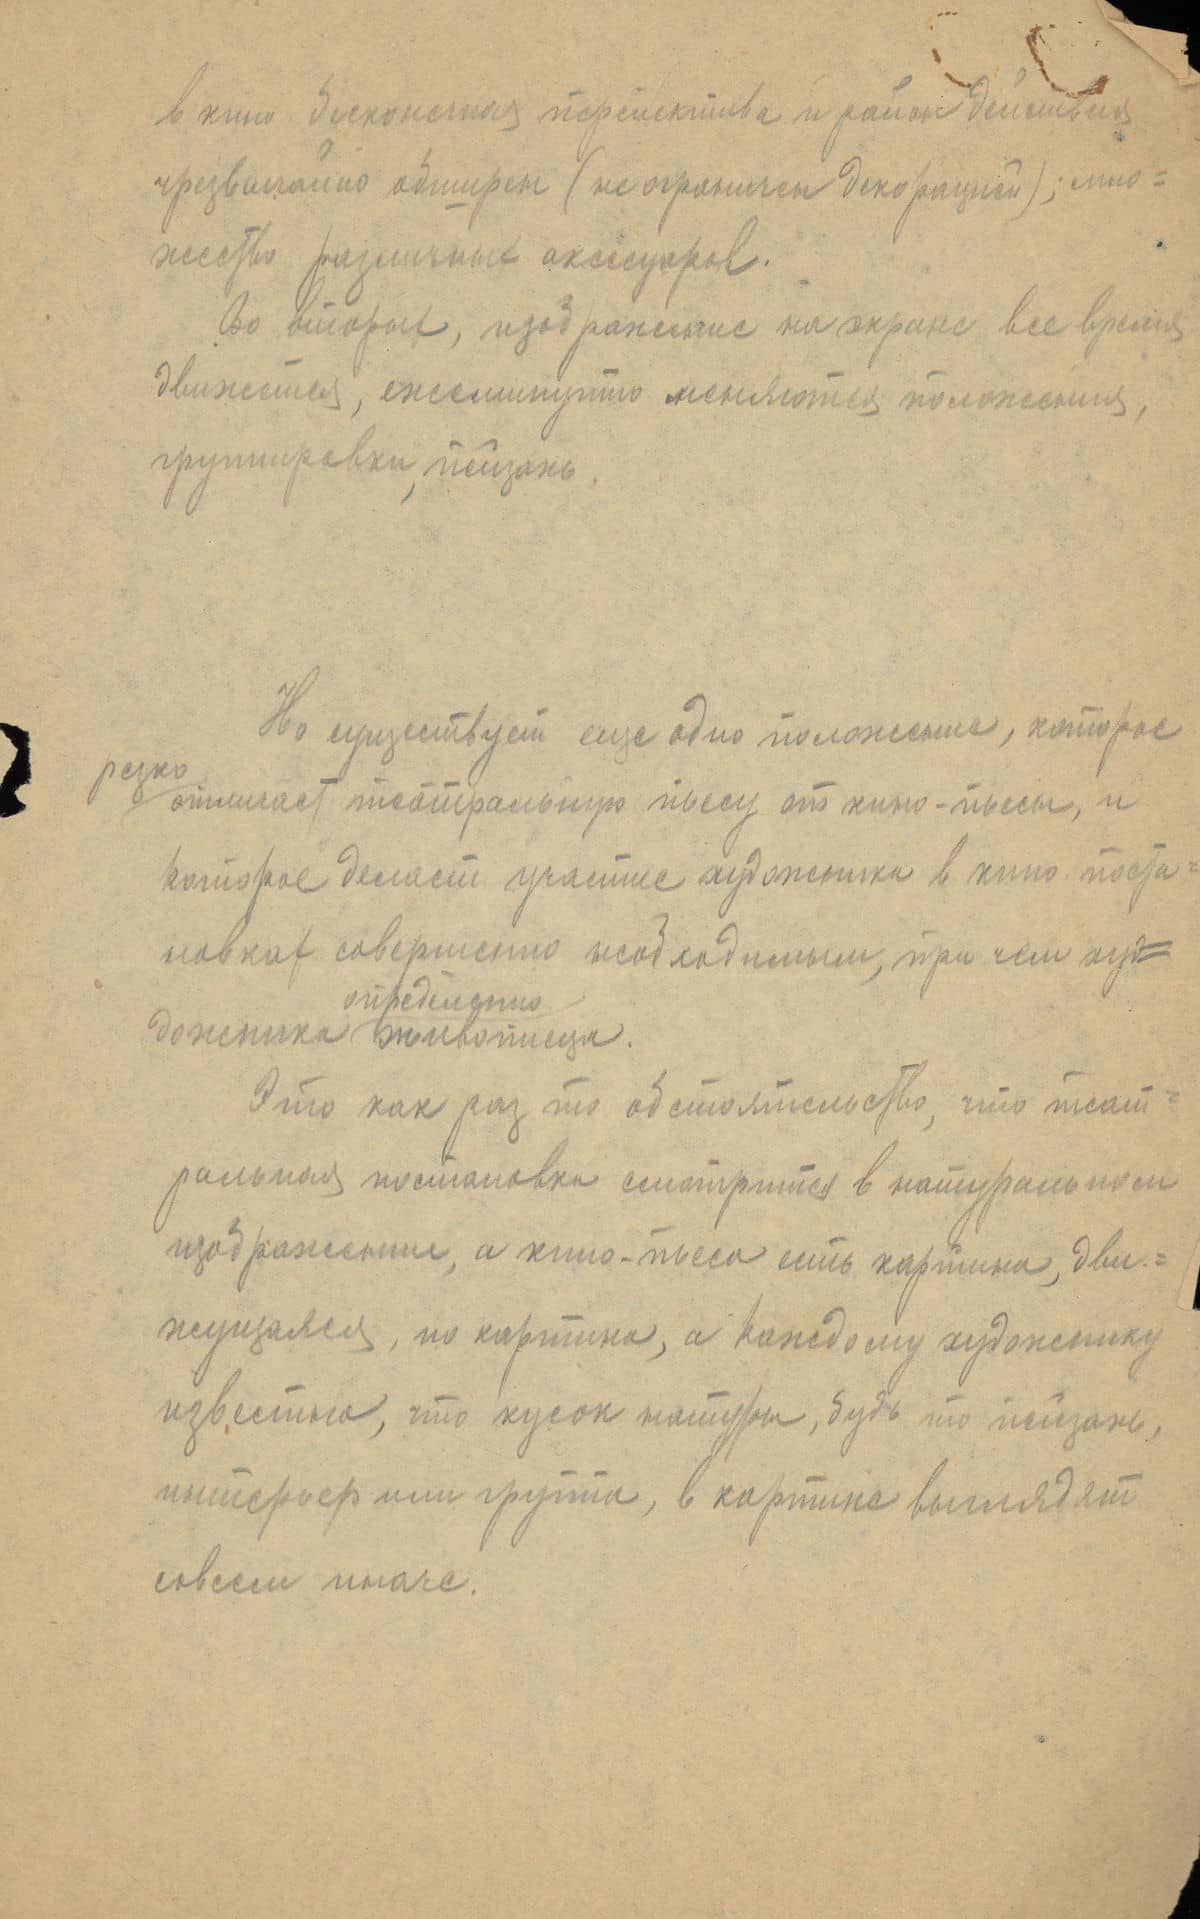 в кино бесконечная перспектива и район действия
чрезвычайно обширен (не ограничен декорацией); мно=
жество различных аксессуаров.
Во вторых, изображение на экране все время
движется, ежеминутно меняются положения,
группировки, пейзаж.
Но существует еще одно положение, которое
резко
отличает театральную пьесу от кино-пьесы, и
которое делает участие художника в кино поста=
новках совершенно необходимым, при чем худ=
определенно
дожника живописца.
Это как раз то обстоятельство, что теат=
ральная постановка смотрится в натуральном
изображении, а кино-пьеса есть картина, дви=
жущаяся, но картина, а каждому художнику
известно, что кусок натуры, будь то пейзаж,
интерьер или группа, в картине выглядят
совсем иначе.